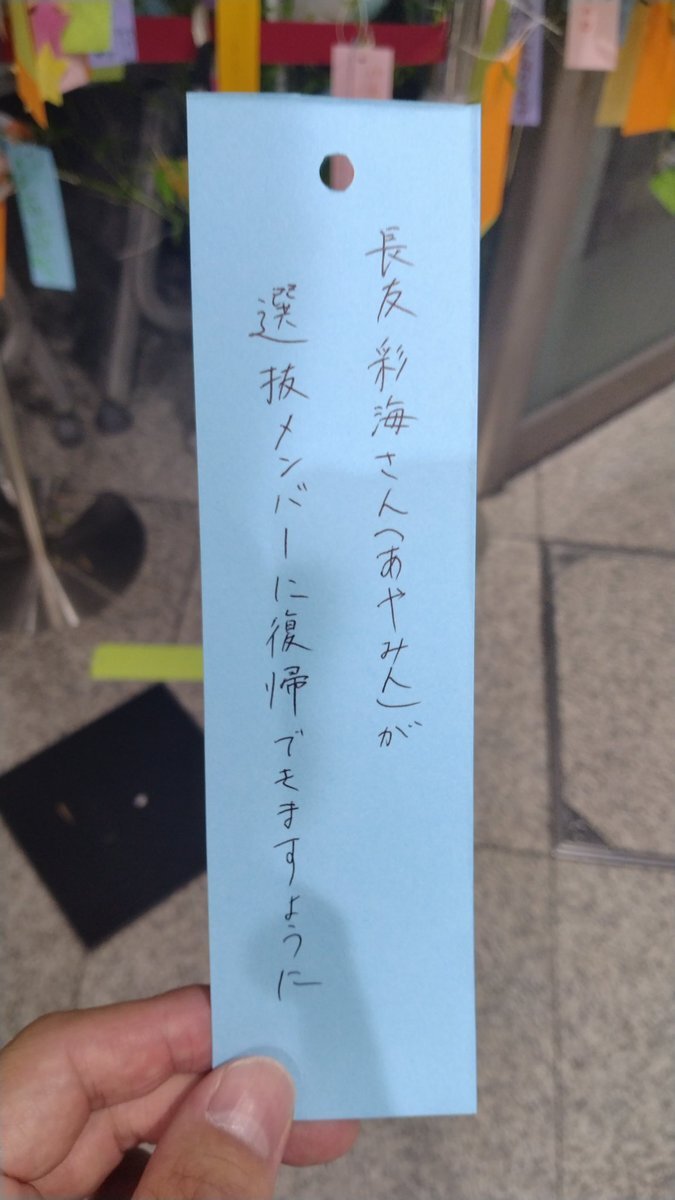 長友彩海さん(あやみん)が
選抜メンバーに復帰できますように